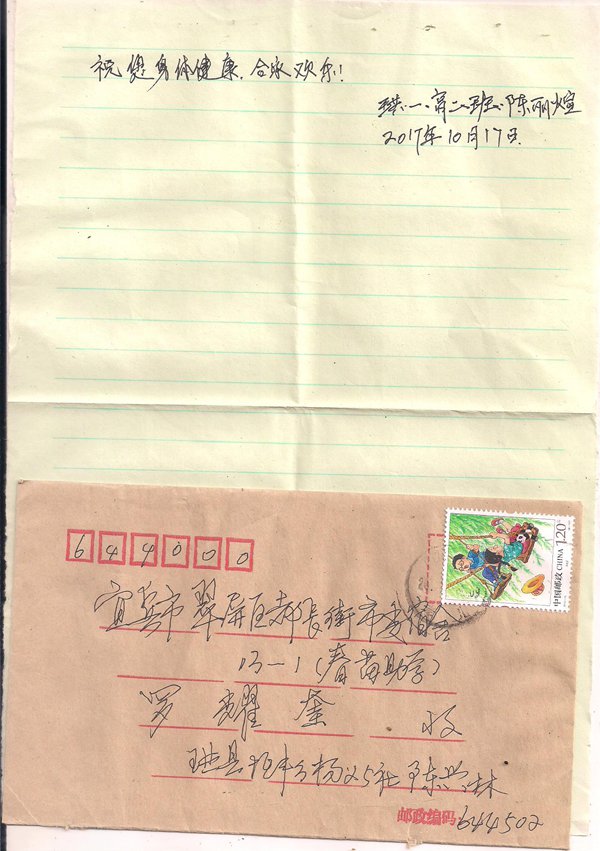 祝您身体健康,合家欢乐!
珙一高二班:陈丽煊
2017年10月17日
644000
1.20
中国邮政 CHINA
宜宾市翠屏区 街市委宿舍
13-1(春苗助学)
罗耀 收
珙县 乡杨义5社 陈兴林
邮政编码 644502